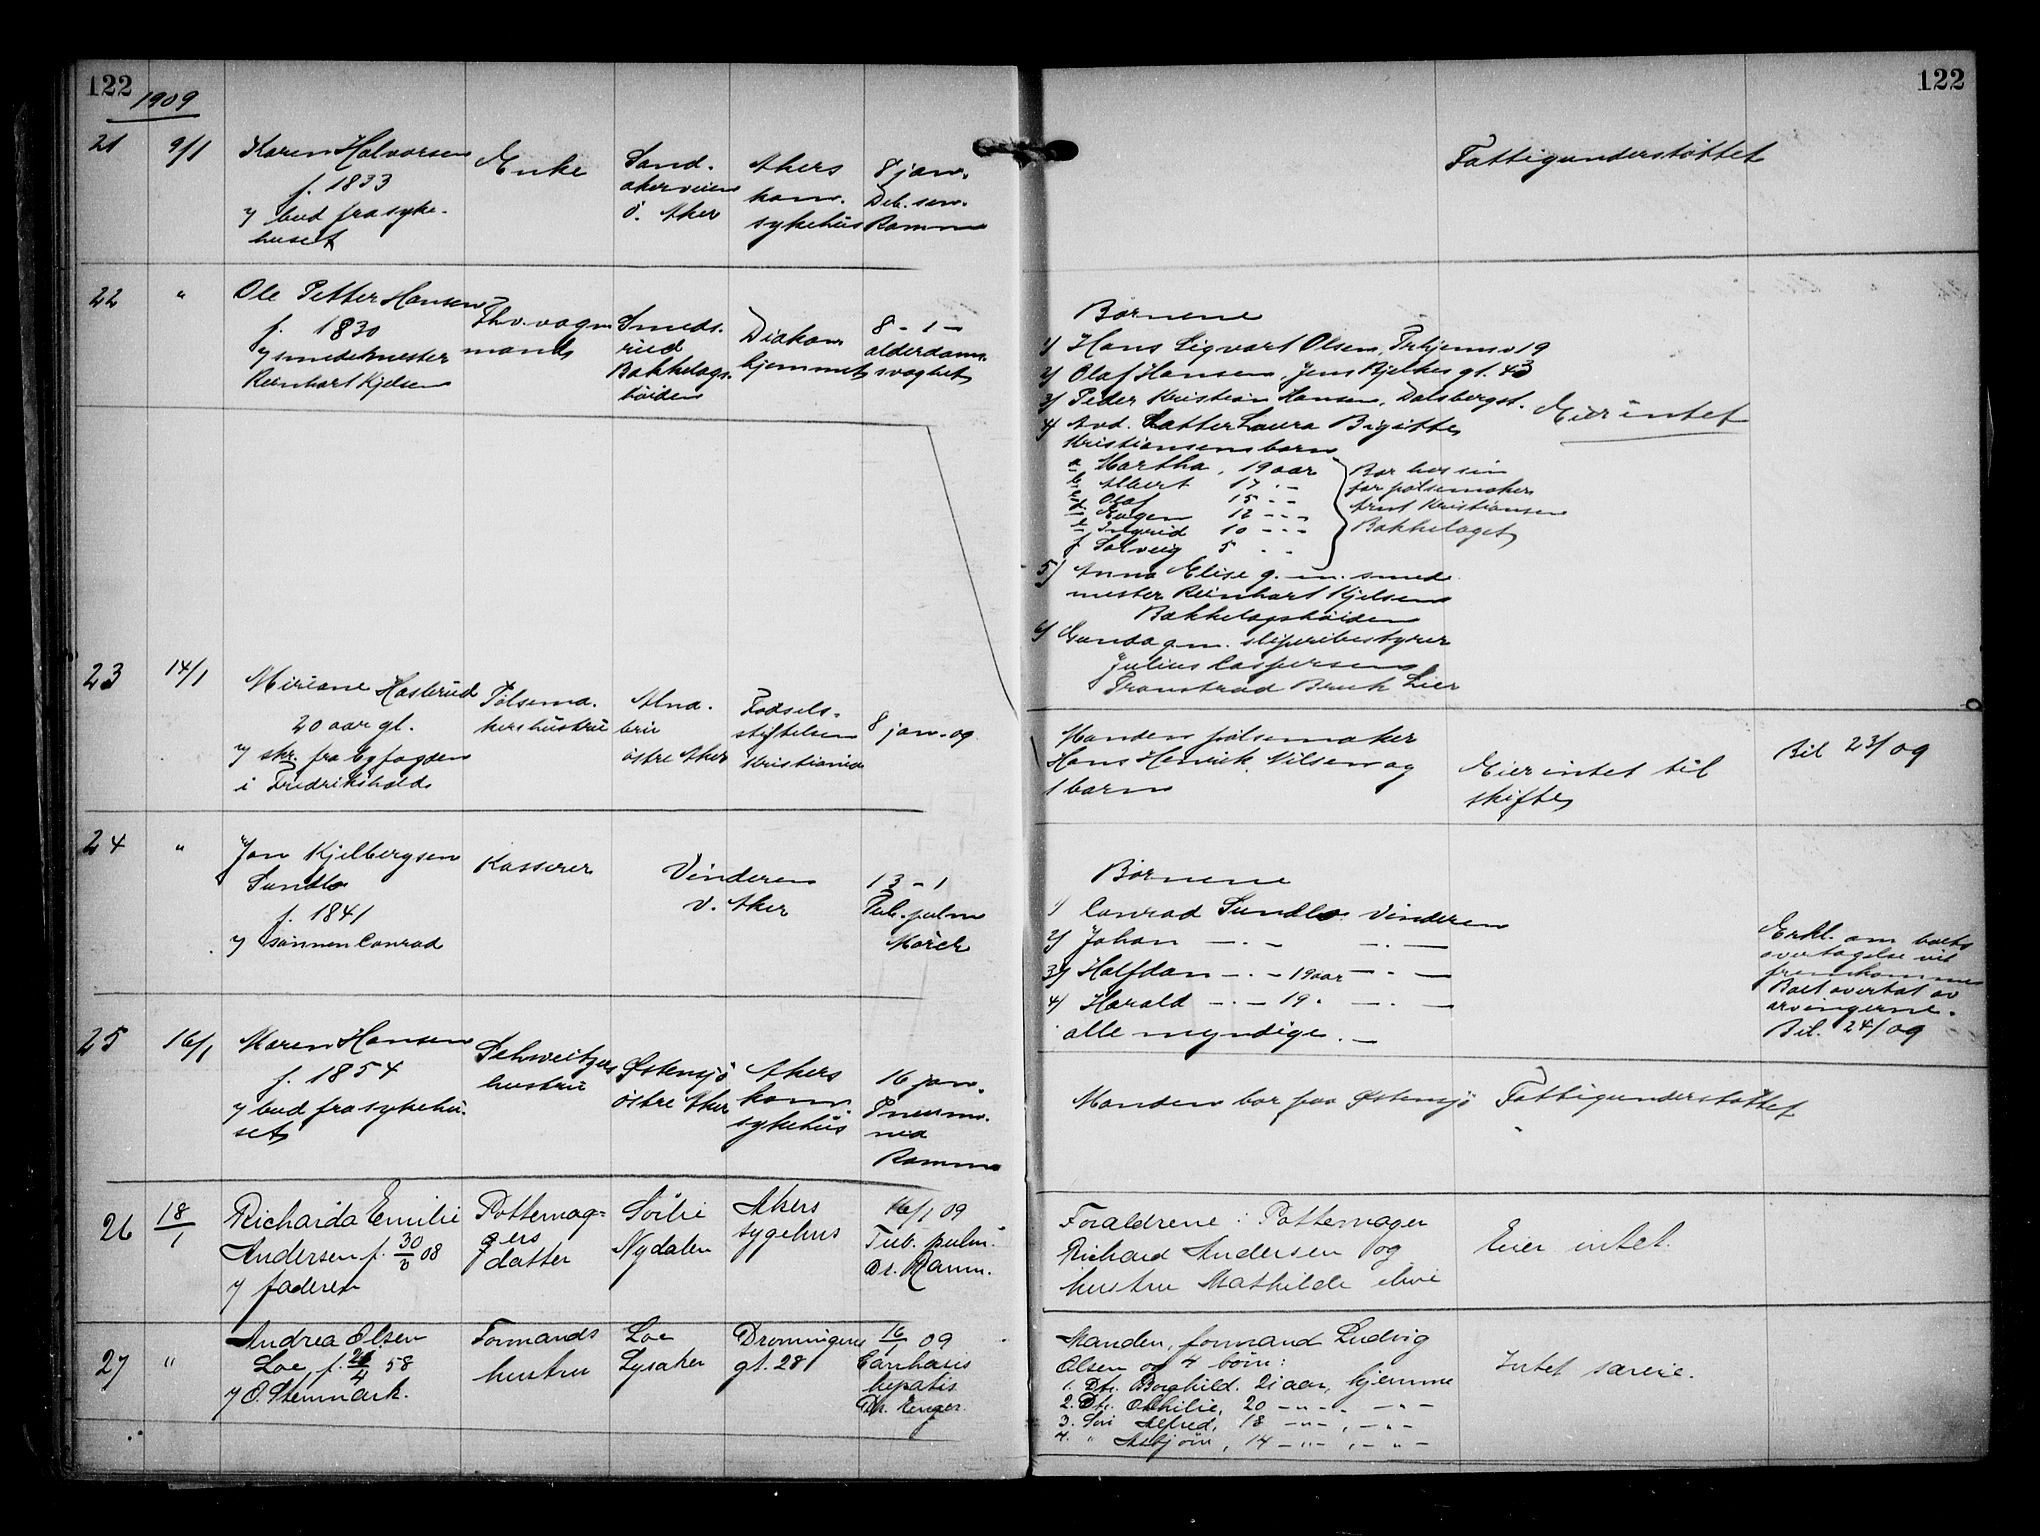 122
1909
21
9/1
Karen Halvorsen
f. 1833
y bud fra syke-
huset
Enke
Sand-
akerveien
ö. Aker
Akers
kom.
sykehus
8 jan.
Deb. sen.
Ramm
Fattigunderstöttet
122
22
"
Ole Petter Hansen
f. 1830
y smedemester
Reinhart Kjelsen
Fhv. vogn
mand
Smeds-
rud
Bækkelags-
höiden
Diakon
hjemmet
8 - 1 -
alderdoms-
svaghet
Börnene
1) Hans Sigvart Olsen, Trhjemsv 19
2) Olaf Hansen, Jens Bjelkes gt. 43
3) Peder Kristian Hansen, Dalsbergst.
4) Avd. Datter Laura Birgitte
Kristiansens barn
a Martha, 19 aar
b Albert 17 - -
c Olaf 15 - -
d Eugen 12 - - -
e Ingrid 10 - - -
f Solveig 5 - -
Bor hos sin
far pölsemaker
Kristiansen
Bækkelaget
5) Anna Elise g. m. smede-
mester Reinhart Kjelsen
Bækkelagshöiden
6) Gunda g. m. sliperibestyrer
Julius Caspersen
Bruk Lier
Eier intet
23
14/1
Miriane Hasterud
20 aar gl.
y skr. fra byfogden
i Fredrikshald
Pölsema-
kers hustru
Alna-
bru
östre Aker
Födsels-
stiftelsen
Kristiania
8 jan. 09
Manden pölsemaker
Hans Henrik Nilsen og
1 barn
Eier intet til
skifte
Bil 23/09
24
"
Jon Kjelbergsen
Sundlo
f. 1841
y sönnen Conrad
Kasserer
Vinderen
v. Aker
13 - 1
Tub. pulm
Mörch
Börnene
1) Conrad Sundlo Vinderen
2) Johan - . - - . -
3) Halfdan - . - 19 aar - . -
4) Harald - . - 19 . - . -
alle myndige. -
Erkl. om boets
overtagelse vil
fremkomme
Boet overtat av
arvingerne.
Bil. 24/09
25
16/1
Maren Hansen
f. 1854
y bud fra sykehu-
set
Schweitzers
hustru
Østensjö
östre Aker
Akers
kom.
sykehus
16 jan.
Pneumo-
nia
Ramm
Manden bor paa Østensjö
Fattigunderstöttet
26
18/1
Richarda Emilie
Andersen f. 30/6 08
y faderen
Pottemag-
gers
datter
Sörlie
Nydalen
Akers
sygehus
16/1 09
Tub. pulm.
Dr. Ramm.
Forældrene: Pottemager
Richard Andersen og
hustru Mathilde
Eier intet.
27
"
Andrea Olsen
Loe f. 21/4 58
y O. Stenmark.
Formands
hustru
Loe
Lysaker
Dronningens
gt. 28
16/1 09
hepatis
Dr. Enger.
Manden, formand Ludvig
Olsen og 4 börn:
1. Dtr. Borghild. 21 aar, hjemme
2. Dtr. Othilie, 20 - " - - " -
3. Sön Alfred, 18 - " - , - " -
4. " Asbjörn, 14 - " - , - " -
Intet særeie.